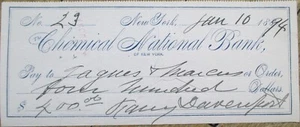 No. 23 New York, Jan 10 1894
The Chemical National Bank,
OF NEW YORK.
Pay to Jaques & Marcus or Order,
Four Hundred Dollars
$ 400.00 Fanny Davenport